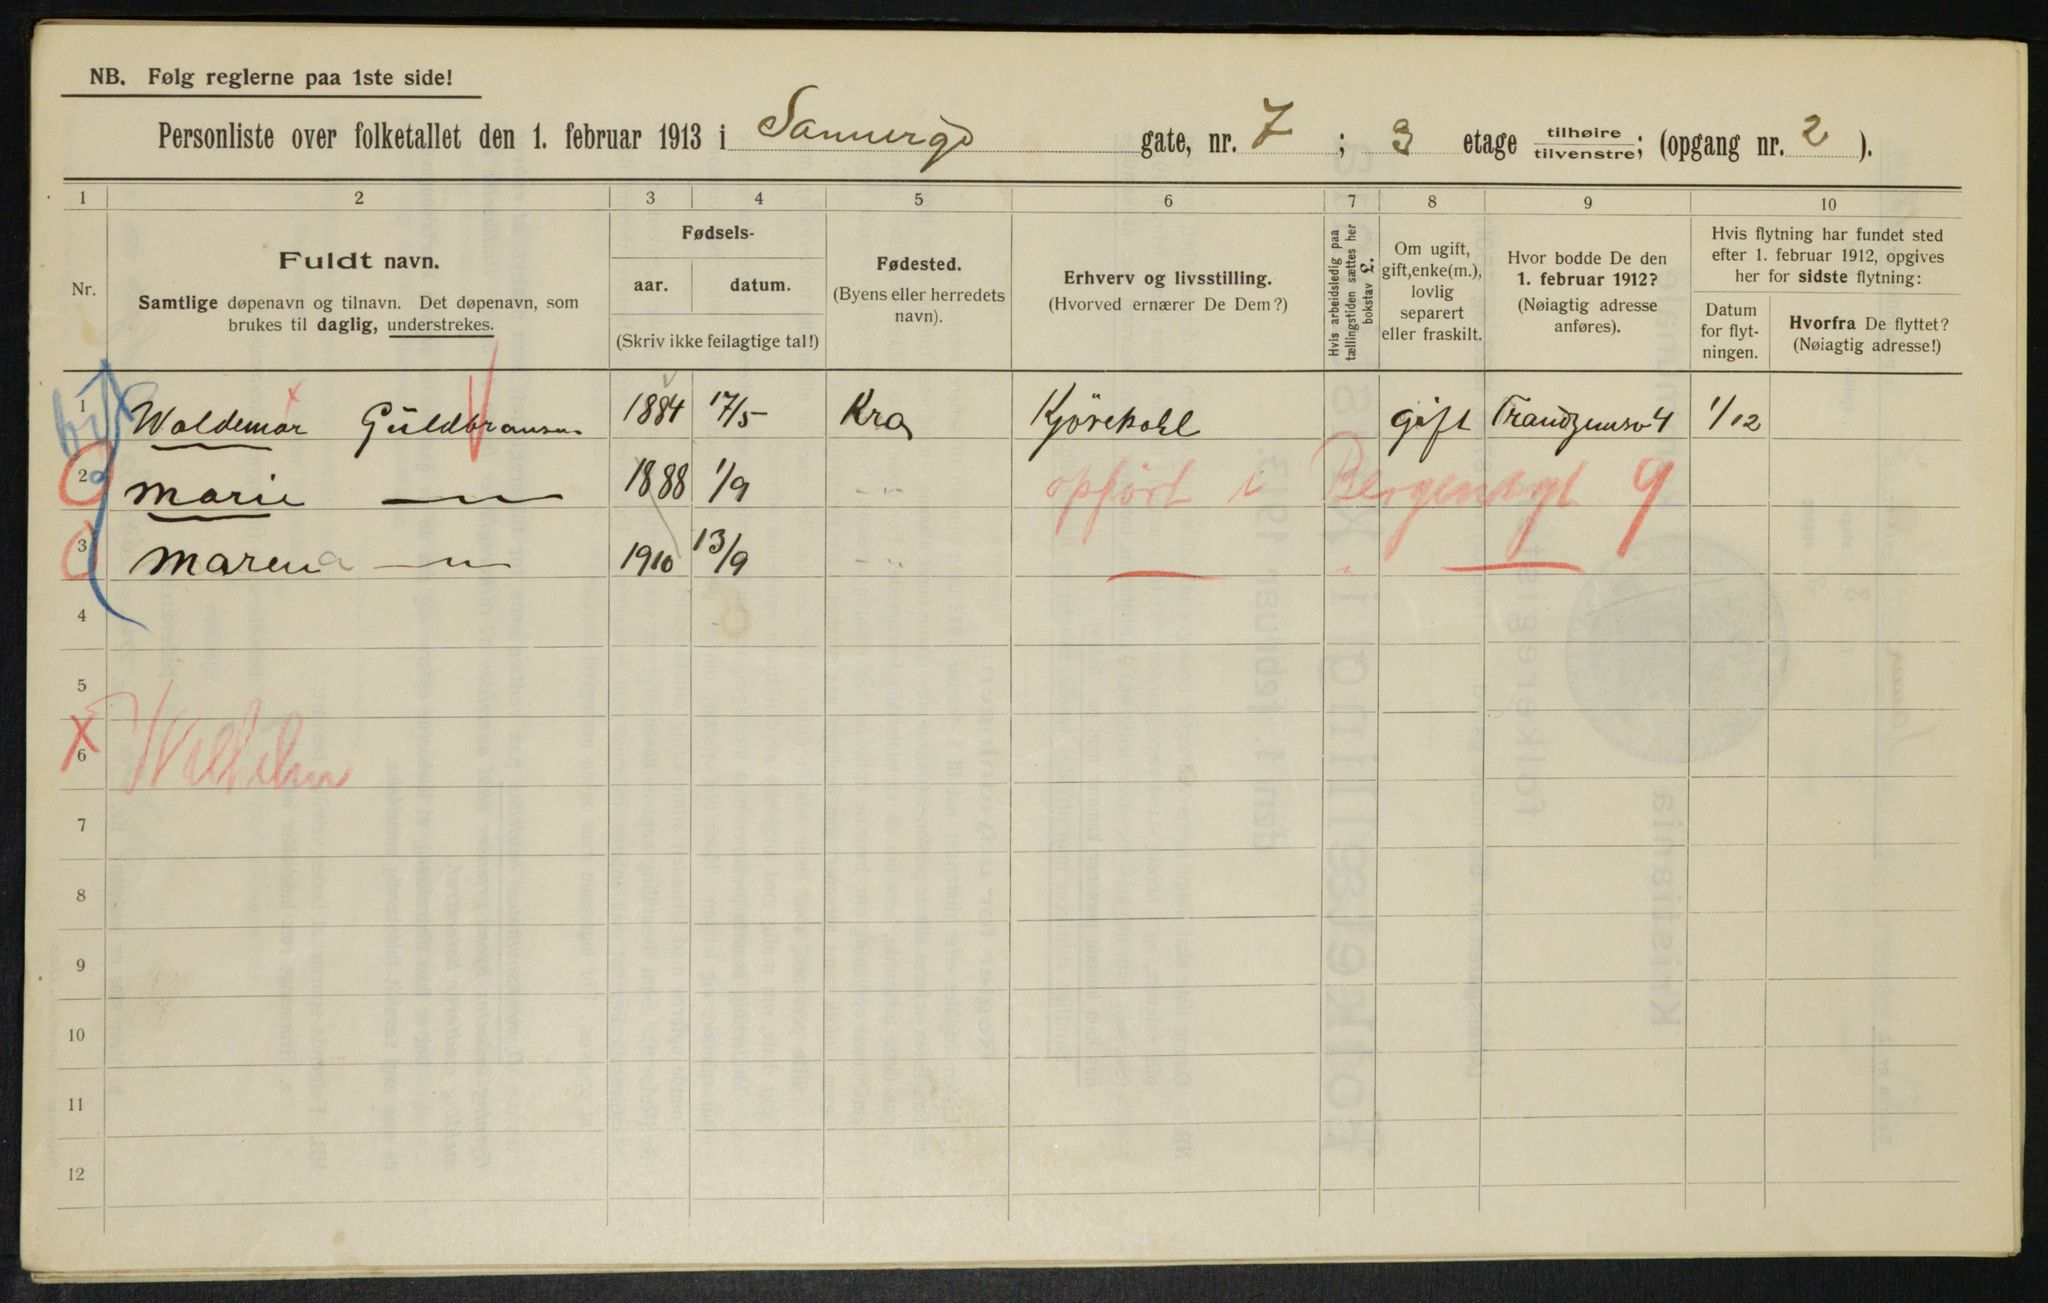 NB. Følg reglerne paa 1ste side!
Personliste over folketallet den 1. februar 1913 i Sannergd gate, nr. 7 ; 3 etage tilhøire tilvenstre; (opgang nr. 2 ).
1 2 3 4 5 6 7 8 9 10
Nr.
Fuldt navn.
Samtlige døpenavn og tilnavn. Det døpenavn, som
brukes til daglig, understrekes.
Fødsels-
aar. datum.
(Skriv ikke feilagtige tal!)
Fødested.
(Byens eller herredets
navn).
Erhverv og livsstilling.
(Hvorved ernærer De Dem?)
Hvis arbeidsledig paa
tællingstiden sættes her
bokstav L.
Om ugift,
gift, enke(m.),
lovlig
separert
eller fraskilt.
Hvor bodde De den
1. februar 1912?
(Nøiagtig adresse
anføres).
Hvis flytning har fundet sted
efter 1. februar 1912, opgives
her for sidste flytning:
Datum
for flyt-
ningen.
Hvorfra De flyttet?
(Nøiagtig adresse!)
1 Waldemar Guldbransen 1884 17/5 Kra Kjørekarl gift 4 1/12
2 Marie — „ — 1888 1/9 - „ - opført i Bergensgt 9
3 Maren — „ — 1910 13/9 - „ -
4
5
6 x Wilhelm
7
8
9
10
11
12